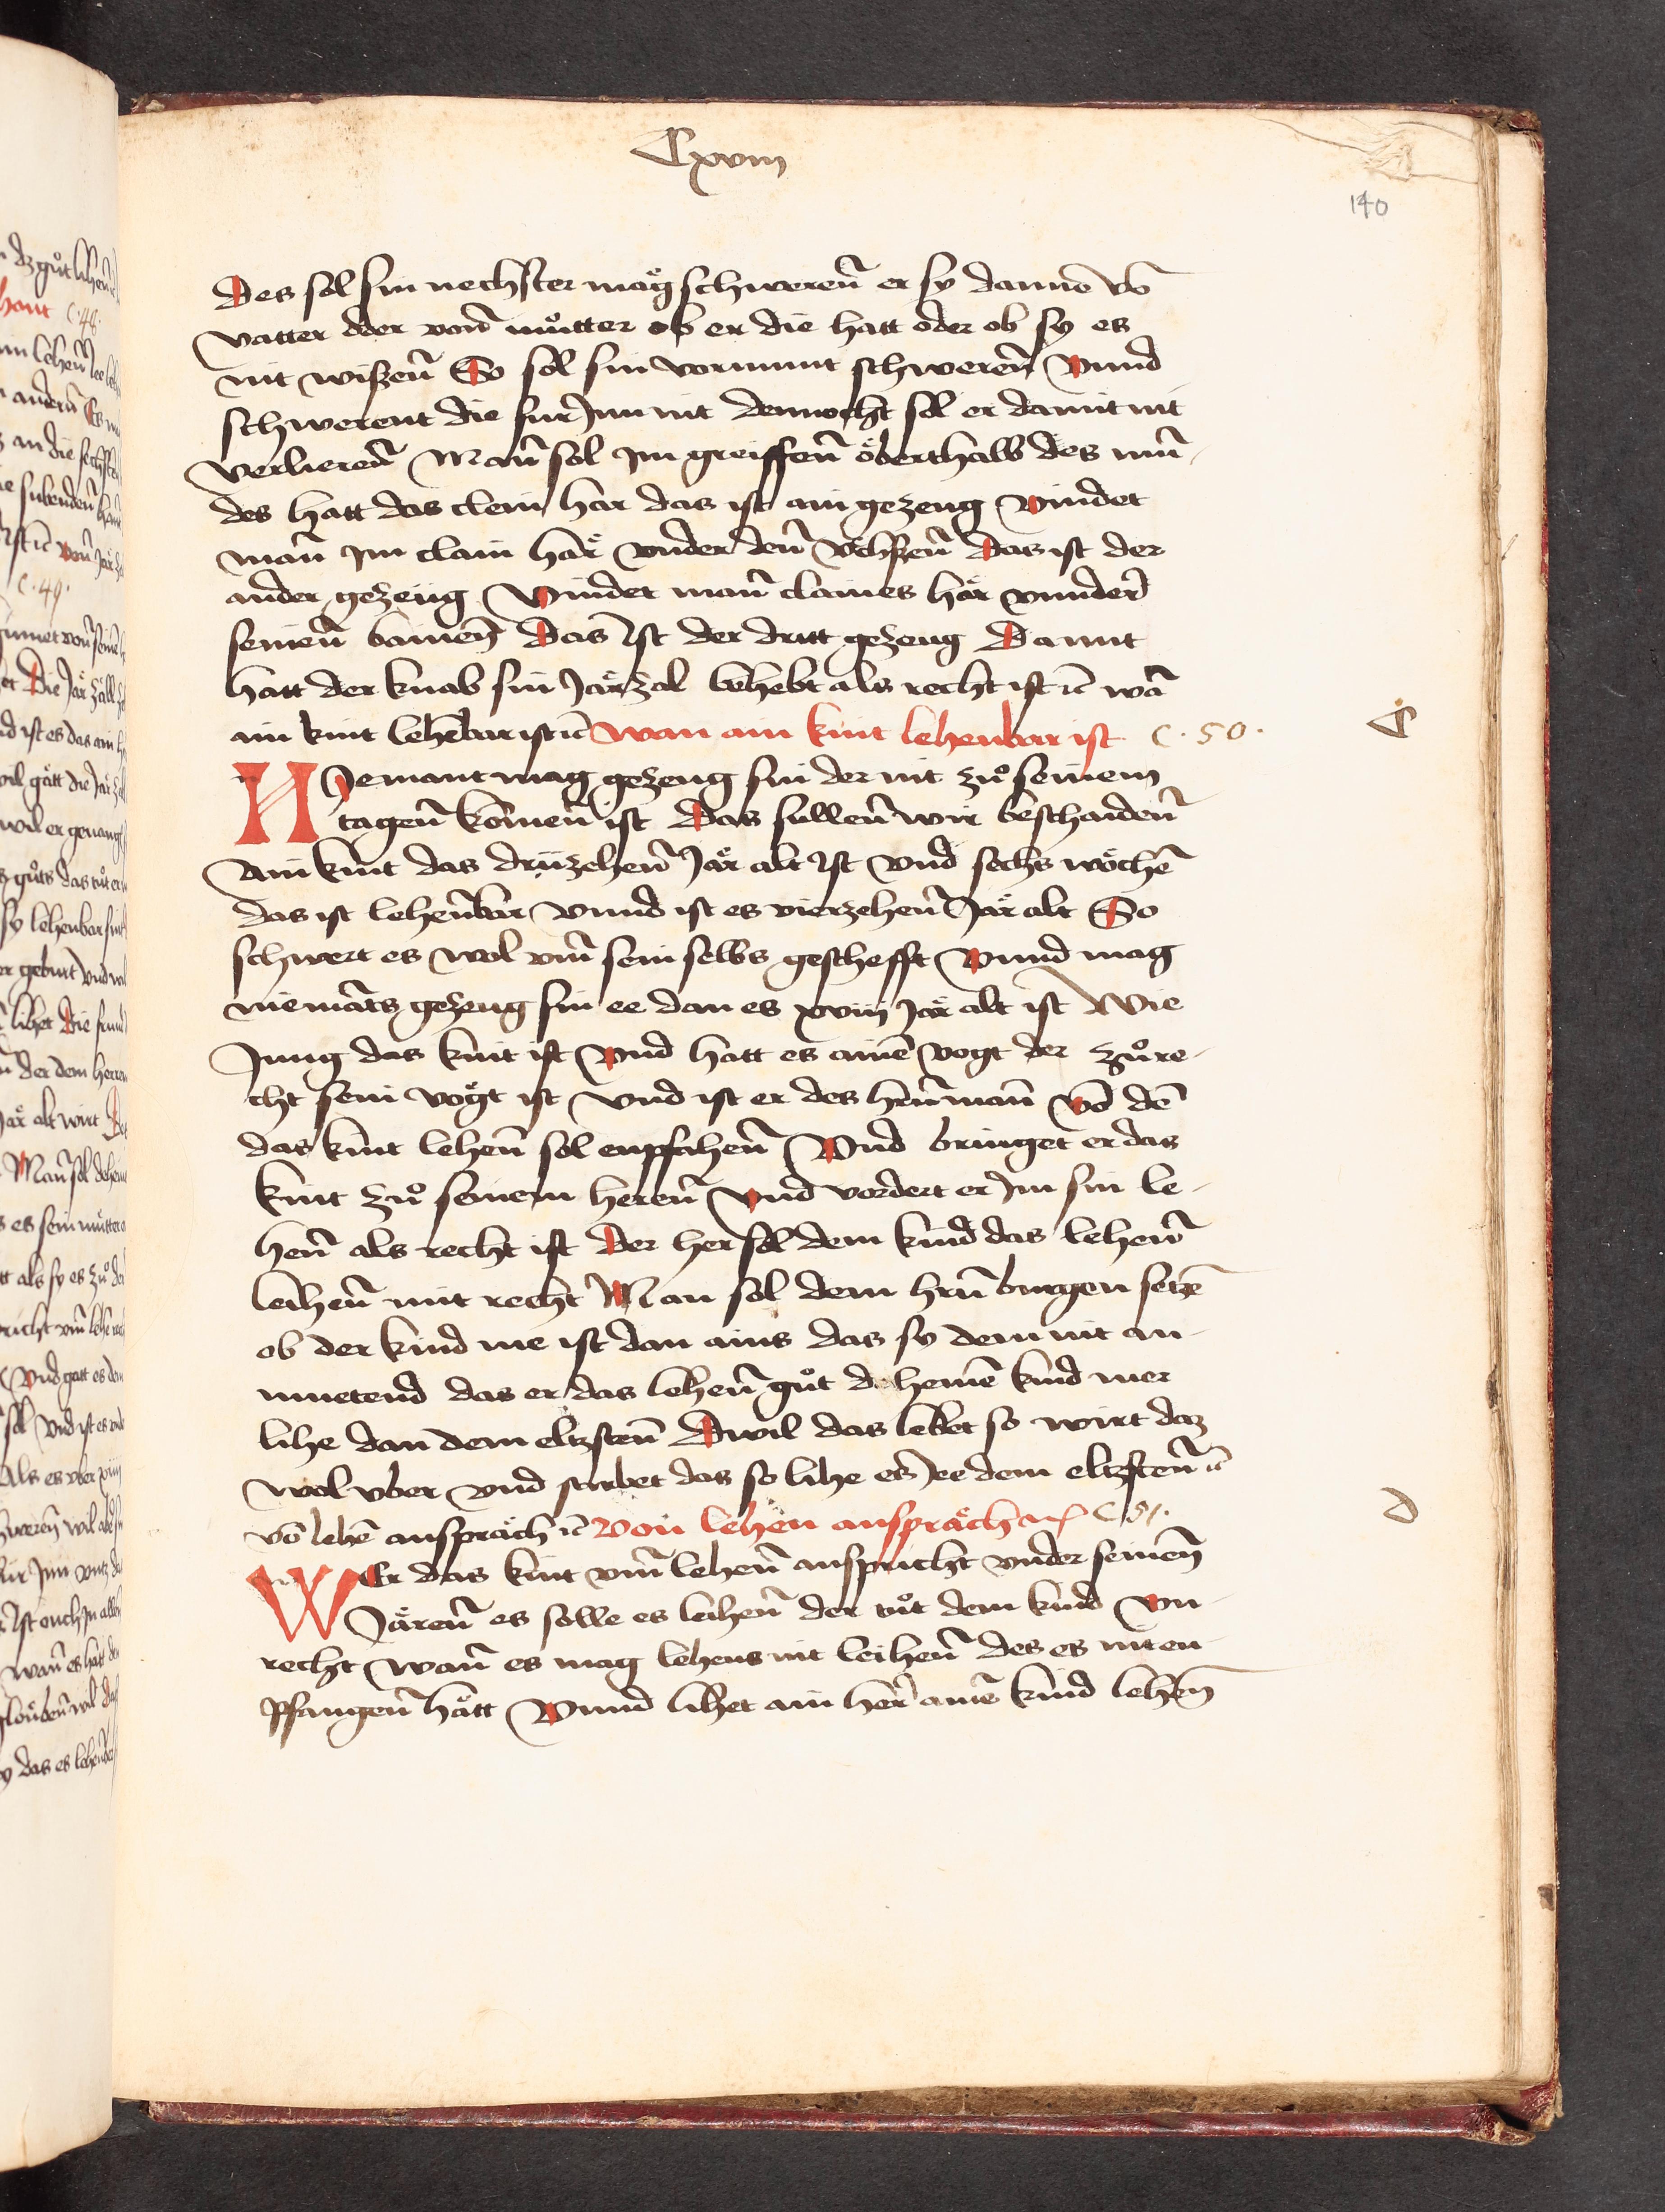 Cxviii
140
Des sol sin nechster mäg schweren̄ er sy danne vō
vatter oder von̄ mům̊tter ob er die hatt oder ob sy es
nit wißen̄ So sol sin vormunt schweren̄ vnnd
schwerent die fur Jnn nit dennocht sol er damit nit
verlieren̄ Man̄ sol Jm greiffen̄ öberthalb des mun̄
des hatt das clein har das ist ain gezeug vindet
man̄ Jm clain här vnder den̄ v̈chßen̄ Das ist der
ander gezeüg Vindet man̄ claines här vnnder
seinen̄ bainen̄ Das Jst der dritt gezeug Damit
hatt der knab sin Jarzal behebt als recht ist ꝛc wā
ain kint lehēbar ist ꝛc wan ain kint lehenbar ist c. 50.
C
NJemant mag gezeug sin der nit zů seinem
tagen̄ komen̄ ist Das sullen̄ wir beschaiden̄
Ain kint das drüzehen̄ Jär alt Jst vnd sechs wöchē
das ist lehen̄bar vnnd ist es vierzehen̄ Jär alt So
schwert es wol vm̄ sein selbs geschefft vnnd mag
niemāts gezeug sin ee dan es xviij Jär alt ist Wie
Jung das kint ist vnd hatt es ainē vogt der zů re-
cht sein vögt ist vnd ist er des hrn̄ man̄ vō dē
das kint lehen̄ sol enpfahen̄ Vnd bringet er das
kint zů seinem heren̄ vnd vordert er Jm sin le-
hen̄ als recht ist Der her sol dem kind das lehen̄
leihen̄ mit recht Man sol dem hrn̄ burgen setzē
ob der kind me ist dan ains das sy dem nit an-
muetend das er das lehen̄ gůt dehemē kind mer
lihe dan dem eltzsten̄ Dwil das lebet so wirt daz
wol vber vnd stirbet das so lihe er ee dem eltzsten̄ ꝛc
vō lehē anspräch ꝛc Von lehen anspräch c. 51.
D
WEr das kint vm̄ lehen̄ anspricht vnder seinen̄
Jären̄ es solle es leihen̄ der tůt dem kind vn-
recht wan̄ es mag lehens nit leihen̄ des es nit en-
pfangen̄ hätt Vnnd lihet ain her ainē kind lehen̄